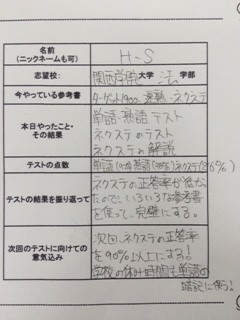 名前
(ニックネームも可)
H-S
志望校:
関西学院大学 法 学部
今やっている参考書
ターゲット1900、速熟、ネクステ
本日やったこと・
その結果
単語・熟語テスト
ネクステのテスト
ネクステの解説
テストの点数
単語 熟語 ネクステ
テストの結果を振り返って
ネクステの正答率が低かっ
たので、いろいろな参考書
を使って、完璧にする。
次回のテストに向けての
意気込み
次回、ネクステの正答率
を90%以上にする!
学校の休み時間も単語の
暗記に使う!